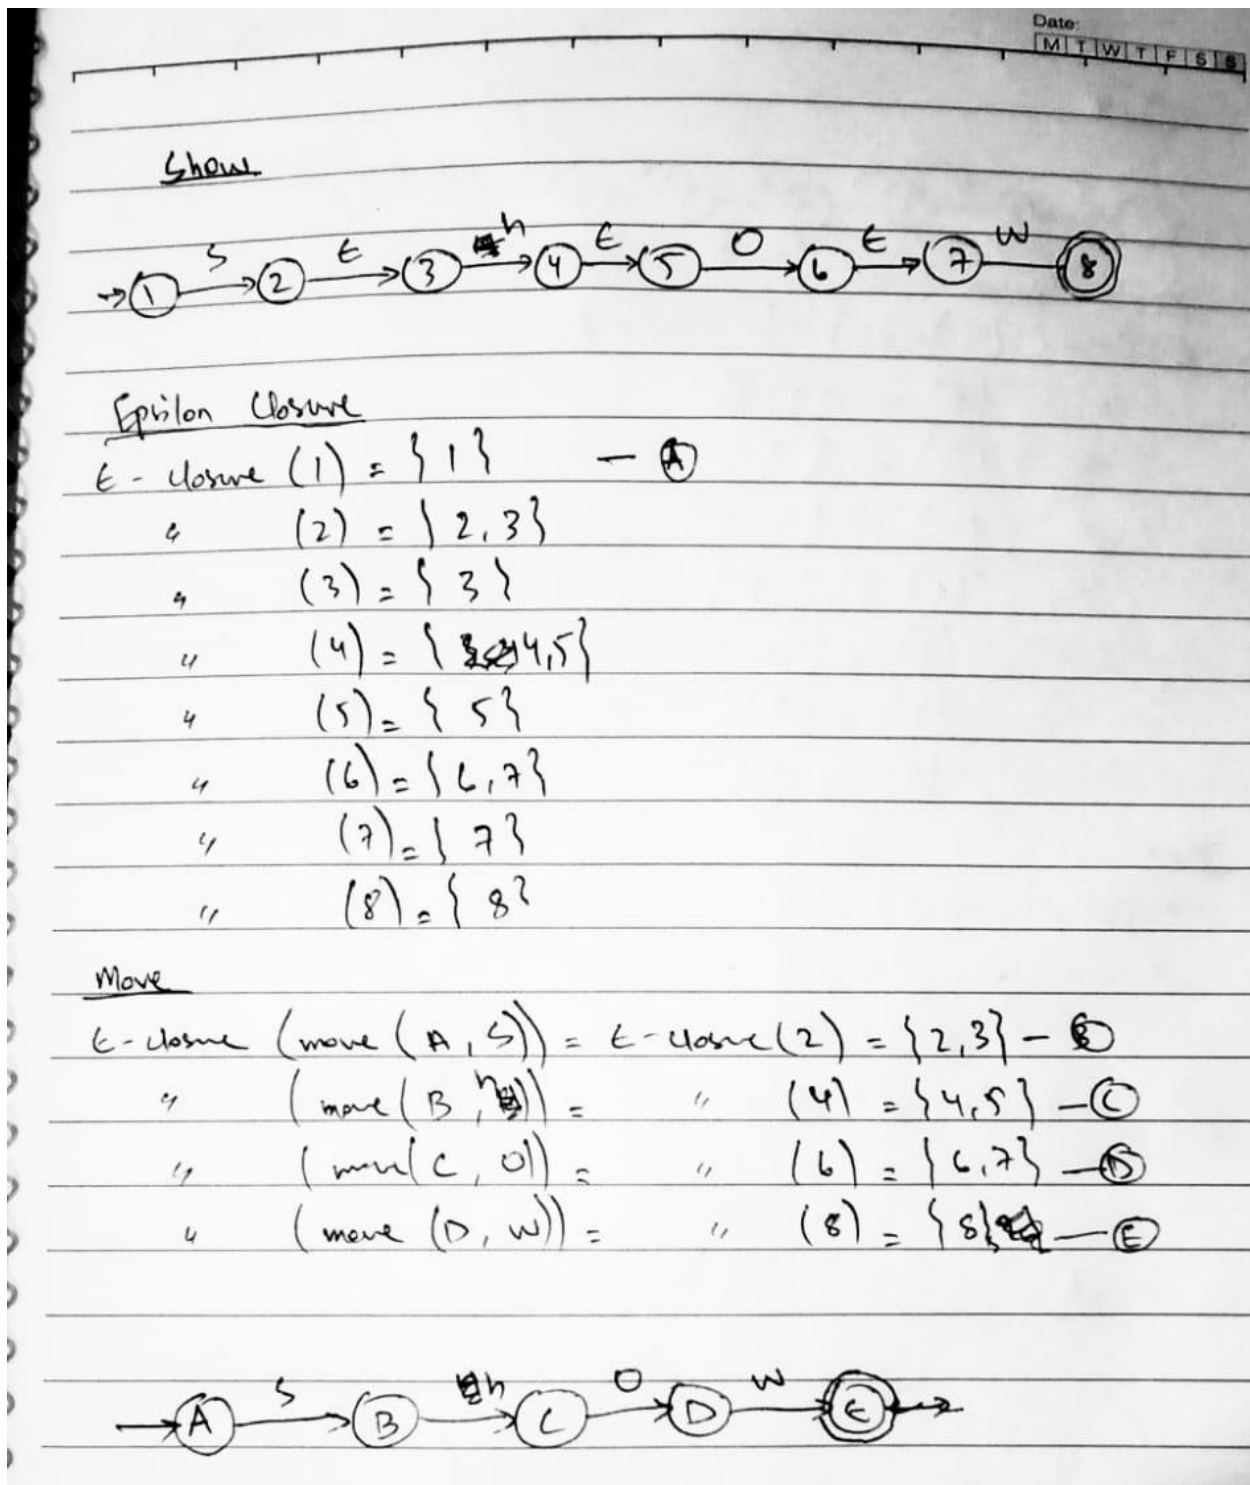 Date:
M T W T F S S
Show
S ε h ε O ε W
1 2 3 4 5 6 7 8
Epsilon Closure
ε - closure (1) = {1} — A
" (2) = {2,3}
" (3) = {3}
" (4) = {4,5}
" (5) = {5}
" (6) = {6,7}
" (7) = {7}
" (8) = {8}
Move
ε-closure (move (A, S)) = ε-closure (2) = {2,3} — B
" (move (B, h)) = " (4) = {4,5} — C
" (move (C, O)) = " (6) = {6,7} — D
" (move (D, W)) = " (8) = {8} — E
S h O W
A B C D E